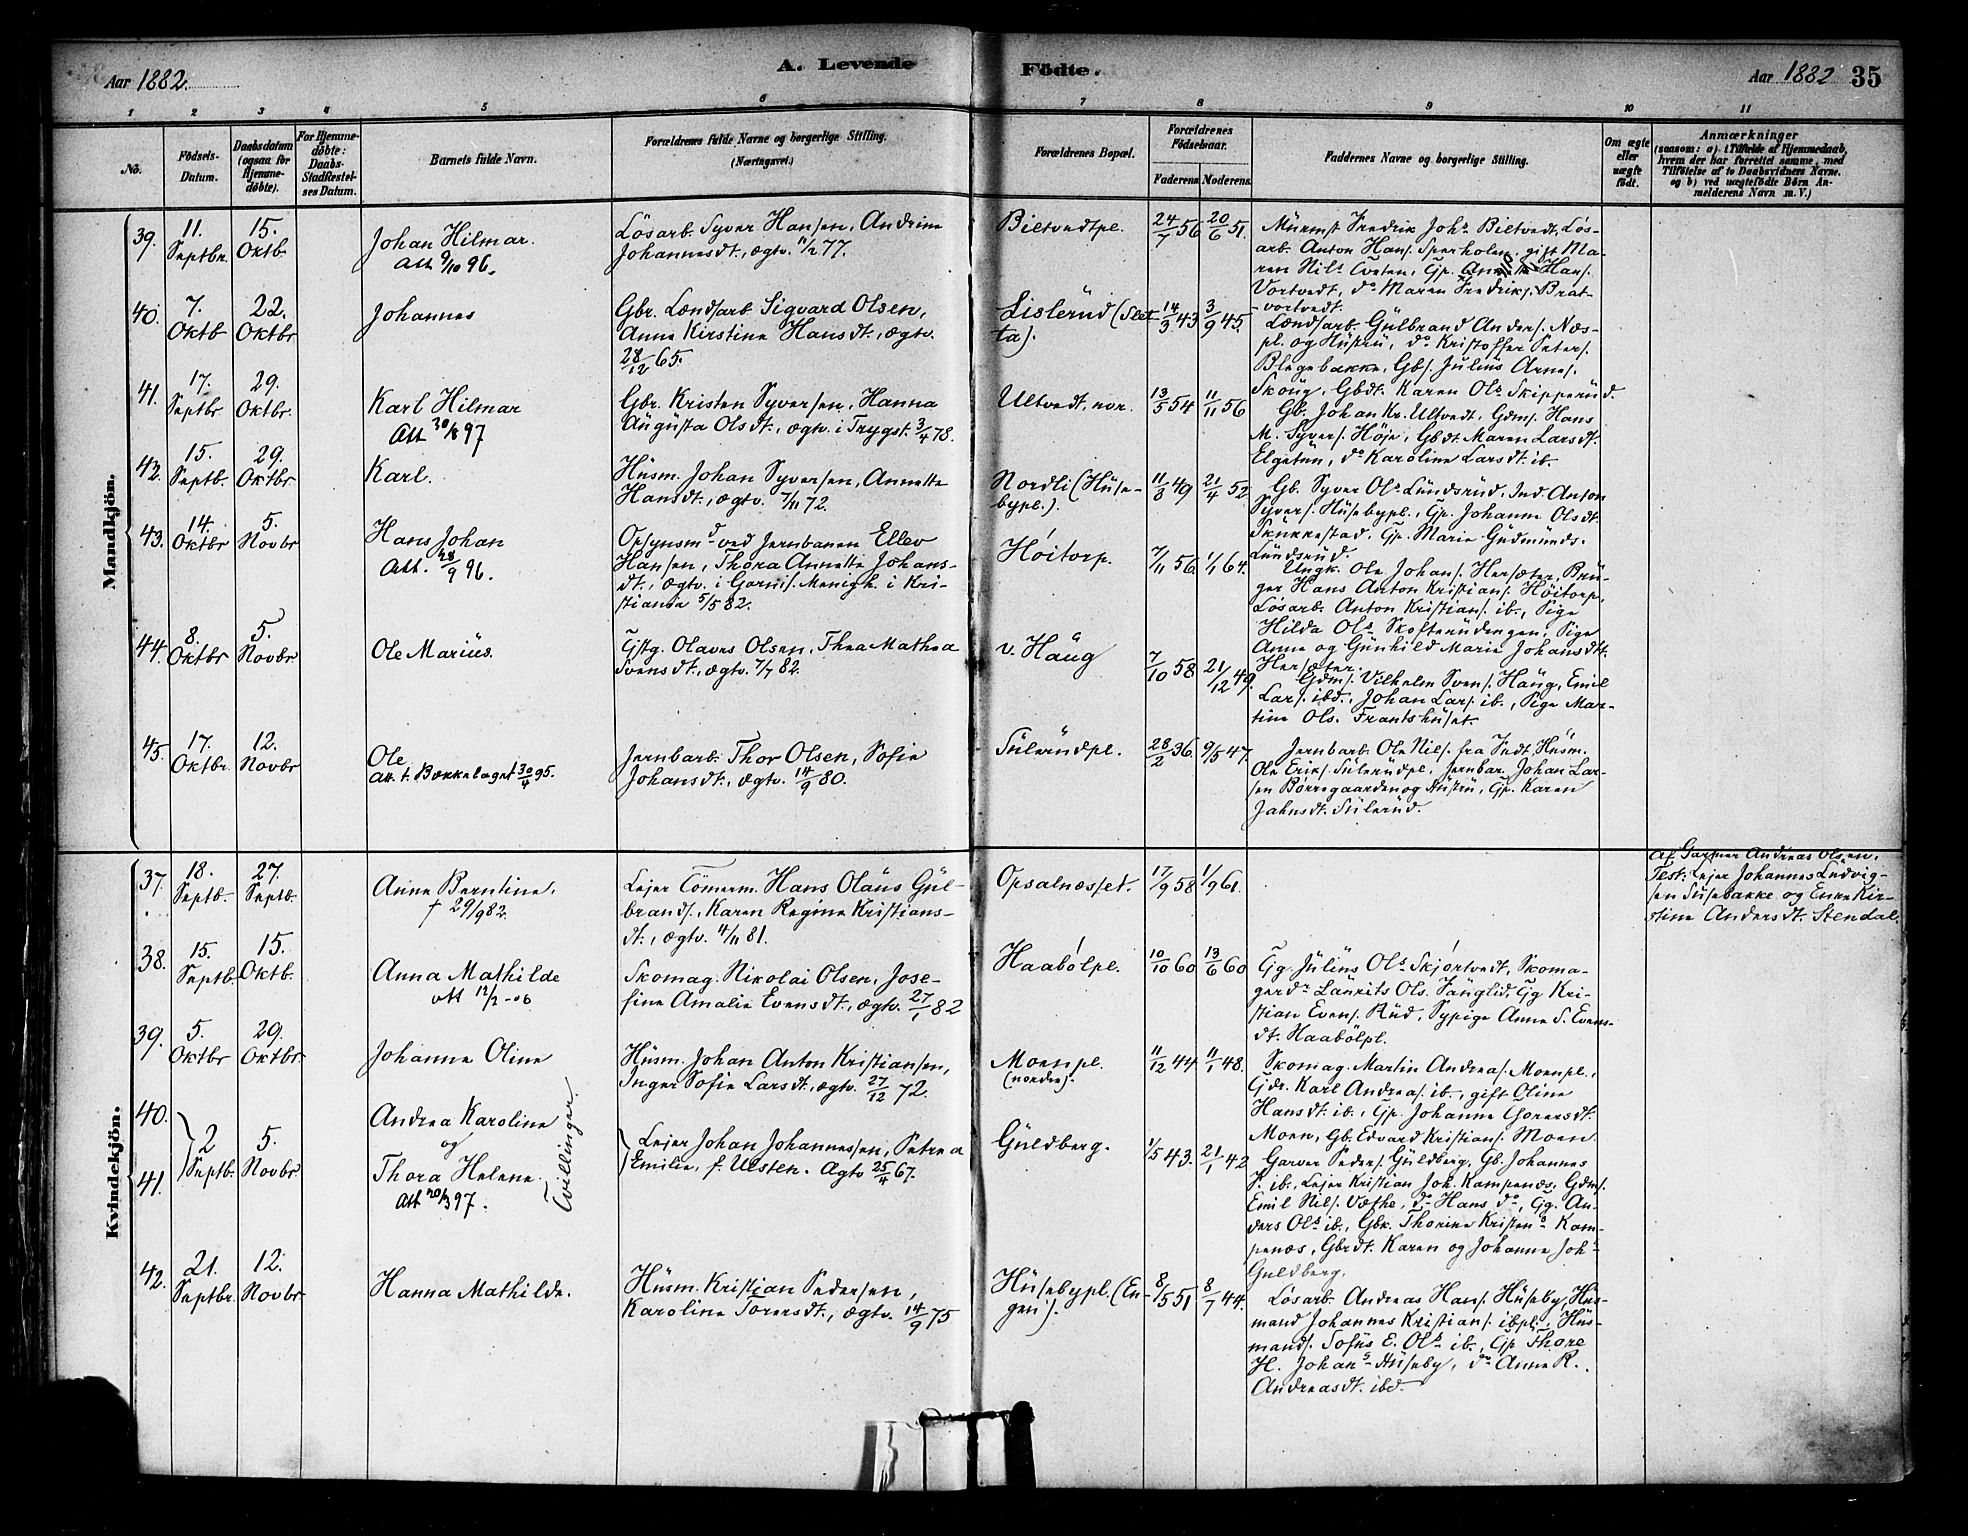 Aar 1882.
A. Levende
Födte.
Aar 1882
35
1 2 3 4 5 6 7 8 9 10 11
No.
Födsels-Datum.
Daabsdatum (ogsaa for Hjemmedöbte).
For Hjemmedöbte: Daabs-Stadfæstelses Datum.
Barnets fulde Navn.
Forældrenes fulde Navne og borgerlige Stilling.
(Næringsvei.)
Forældrenes Bopæl.
Forældrenes Födselsaar.
Faderens. Moderens.
Faddernes Navne og borgerlige Stilling.
Om ægte eller uægte födt.
Anmærkninger
(saasom: a). i Tilfælde af Hjemmedaab,
hvem der har forrettet samme, med
Tilföielse af to Daabsvidners Navne.
og b) ved uægtefödte Börn Anmelderens Navn m. V.)
Mandkjön.
39. 11. Septbr. 15. Oktb.
Johan Hilmar.
Att 9/10 96.
Lösarb. Syver Hansen, Andrine
Johannesdt., ægtv. 11/2 77.
Bieltvedtpl.
24/7 56 20/6 51.
Murmst Fredrik Johs. Bieltvedt, Lös-
arb. Anton Hans. Sperholen, gift Ma-
ren Nils. Tveten, Gp.
Hans.
Vortvedt, do Maren Fredriks. Brat-
vortvedt.
40. 7. Oktb 22. Oktbr
Johannes
Gbr. Lændsarb Sigvard Olsen,
Anne Kirstine Hansdt., ægtv.
28/12 65.
Lislerud (Slet-
ta).
14/3 43 3/9 45.
Lændsarb. Gulbrand Anders. Næs-
pl. og Hustru, do Kristoffer Peters.
Blegebakke, Gbs. Julius Arnes.
Skoug, Gbdt. Karen Ols. Skipperud.
41. 17. Septbr 29. Oktbr.
Karl Hilmar
Att 30/8 97
Gbr. Kristen Syversen, Hanna
Augusta Olsdt., ægtv. i Trygst. 3/4 78.
Ultvedt, nor.
13/5 54 11/11 56
Gb. Johan Kr. Ultvedt, Gdms. Hans
M. Syvers. Höje, Gbdt. Maren Larsdt.
Elgetun, do Karoline Larsdt. ib.
42. 15. Septb. 29. Oktbr
Karl.
Husm. Johan Syversen, Annette
Hansdt., ægtv. 7/11 72.
Nordli (Huse-
bypl.).
11/3 49 21/4 52
Gb. Syver Ols. Lundsrud, Ind. Anton
Syvers. Husebypl., Gp. Johanne Olsdt.
Skukkestad, Gp. Marie Gudmunds.
Lundsrud.
43. 14. Oktbr 5. Novbr
Hans Johan
Att. 28/9 96.
Opsynsmd ved Jernbanen Ellev
Hansen, Thora Annette Johans-
dt., ægtv. i Garnis. Menigh. i Kri-
stiania 5/5 82.
Höitorp.
7/11 56. 1/1 64.
Ungk. Ole Johans. Hersæter, Bru-
ger Hans Anton Kristians. Höitorp,
Lösarb. Anton Kristians. ib., Pige
Hilda Ols. Skofterudengen, Pige
Anne og Gunhild Marie Johansdtt.
Hersæter.
44. 8. Oktbr 5. Novbr
Ole Marius.
Gstg. Olaves Olsen, Thea Mathea
Svensdt., ægtv. 7/7 82.
v. Haug
7/10 58 21/12 49.
Gdms. Vilhelm Svens. Haug, Emil
Lars. ibd., Johan Lars. ib., Pige Mar-
tine Ols. Frantshuset.
45. 17. Oktbr. 12. Novbr
Ole
Att. t. Bækkelaget 30/4 95.
Jernbarb. Thor Olsen, Sofie
Johansdt., ægtv. 14/9 80.
Sulerudpl.
28/2 36. 9/5 47.
Jernbarb. Ole Nils. fra Indt, Husm.
Ole Eriks. Sulerudpl., Jernbar. Johan Lar-
sen Börregaarden og Hustru, Gp. Karen
Jahnsdt. Sulerud.
Kvindekjön.
37. 18. Septb. 27. Septb.
Anne Berntine.
† 29/9 82.
Lejer Tömerm. Hans Olaus Gul-
brands., Karen Regine Kristians-
dt., ægtv. 4/11 81.
Opsalnæsset.
17/9 58 1/9 61.
Af Garver Andreas Olsen.
Test: Lejer Johannes Ludvig-
sen Husebakke og Enke Kir-
stine Andersdt. Stendal.
38. 15. Septb. 15. Oktb.
Anna Mathilde
Att 12/2-06
Skomag. Nikolai Olsen, Jose-
fine Amalie Evensdt., ægtv. 27/1 82
Haabölpl.
10/10 60 13/6 60
Gg. Julius Ols. Skjörtvedt, Skoma-
gerdr. Laurits Ols. Fanglid, Gg Kri-
stian Evens. Rud, Sypige Anne S. Evens-
dt. Haabölpl.
39. 5. Oktbr 29. Oktbr.
Johanne Oline
Husm. Johan Anton Kristiansen,
Inger Sofie Larsdt., ægtv. 27/12 72.
Moenpl.
(nordre).
11/12 44 11/1 48.
Skomag. Martin Andreas. Moenpl.,
Gdr. Karl Andreas. ib., gift Oline
Hansdt. ib., Gp. Johanne Gorersdt.
Moen, Gb. Edvard Kristians. Moen.
40.
41.
2 Septb. 5. Novbr.
Andrea Karoline
og
Thora Helene.
Att 20/3 97.
Tvillinger.
Lejer Johan Johannessen, Petrea
Emilie, f. Ulsten. Ægtv 25/4 67.
Guldberg.
1/5 43. 21/1 42
Garver Peders. Guldberg, Gb. Johannes
P. ib., Lejer Kristian Joh. Kampenæs, Gdms.
Emil Nils. Væthe, do Hans do, Gg. An-
ders Ols. ib., Gbk. Thorine Kristens. Kam-
penæs, Gbrdt. Karen og Johanne Joh.
Guldberg.
42. 21. Septbr. 12. Novbr
Hanna Mathilde.
Husm. Kristian Pedersen,
Karoline Torersdt., ægtv. 14/9 75
Husebypl. (En-
gen).
8/5 51 8/7 44.
Lösarb. Andreas Hans. Huseby, Hus-
mand Johannes Kristians. ibpl., Hus-
mands. Sofus E. Ols. ib., Gp Thore
H. Johans. Huseby, do Anne R.
Andreasdt. ibd.